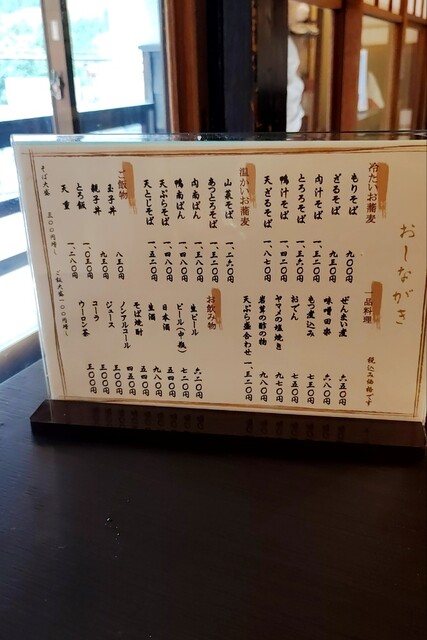 おしながき
税込み価格です
冷たいお蕎麦
もりそば 九〇〇円
ざるそば 九五〇円
肉汁そば 一、三二〇円
とろろそば
鴨汁そば 一、四二〇円
天ざるそば 一、八七〇円
温かいお蕎麦
山菜そば 一、二六〇円
あつとろそば 一、三二〇円
肉南ばん 一、三八〇円
鴨南ばん 一、四八〇円
天ぷらそば 一、四八〇円
天とじそば 一、五二〇円
ご飯物
玉子丼 八五〇円
親子丼 九五〇円
とろ飯 一、〇五〇円
天重 一、二八〇円
一品料理
ぜんまい煮 六五〇円
味噌田楽 六八〇円
もつ煮込み 七三〇円
おでん 七五〇円
ヤマメの塩焼き 九七〇円
岩茸の酢の物 九八〇円
天ぷら盛合わせ 一、三二〇円
お飲み物
生ビール 六二〇円
ビール(中瓶) 七二〇円
日本酒 五四〇円
生酒 九八〇円
そば焼酎 五四〇円
ノンアルコール 四五〇円
ジュース 三〇〇円
コーラ 三〇〇円
ウーロン茶 三〇〇円
そば大盛 三〇〇円増し ご飯大盛一〇〇円増し